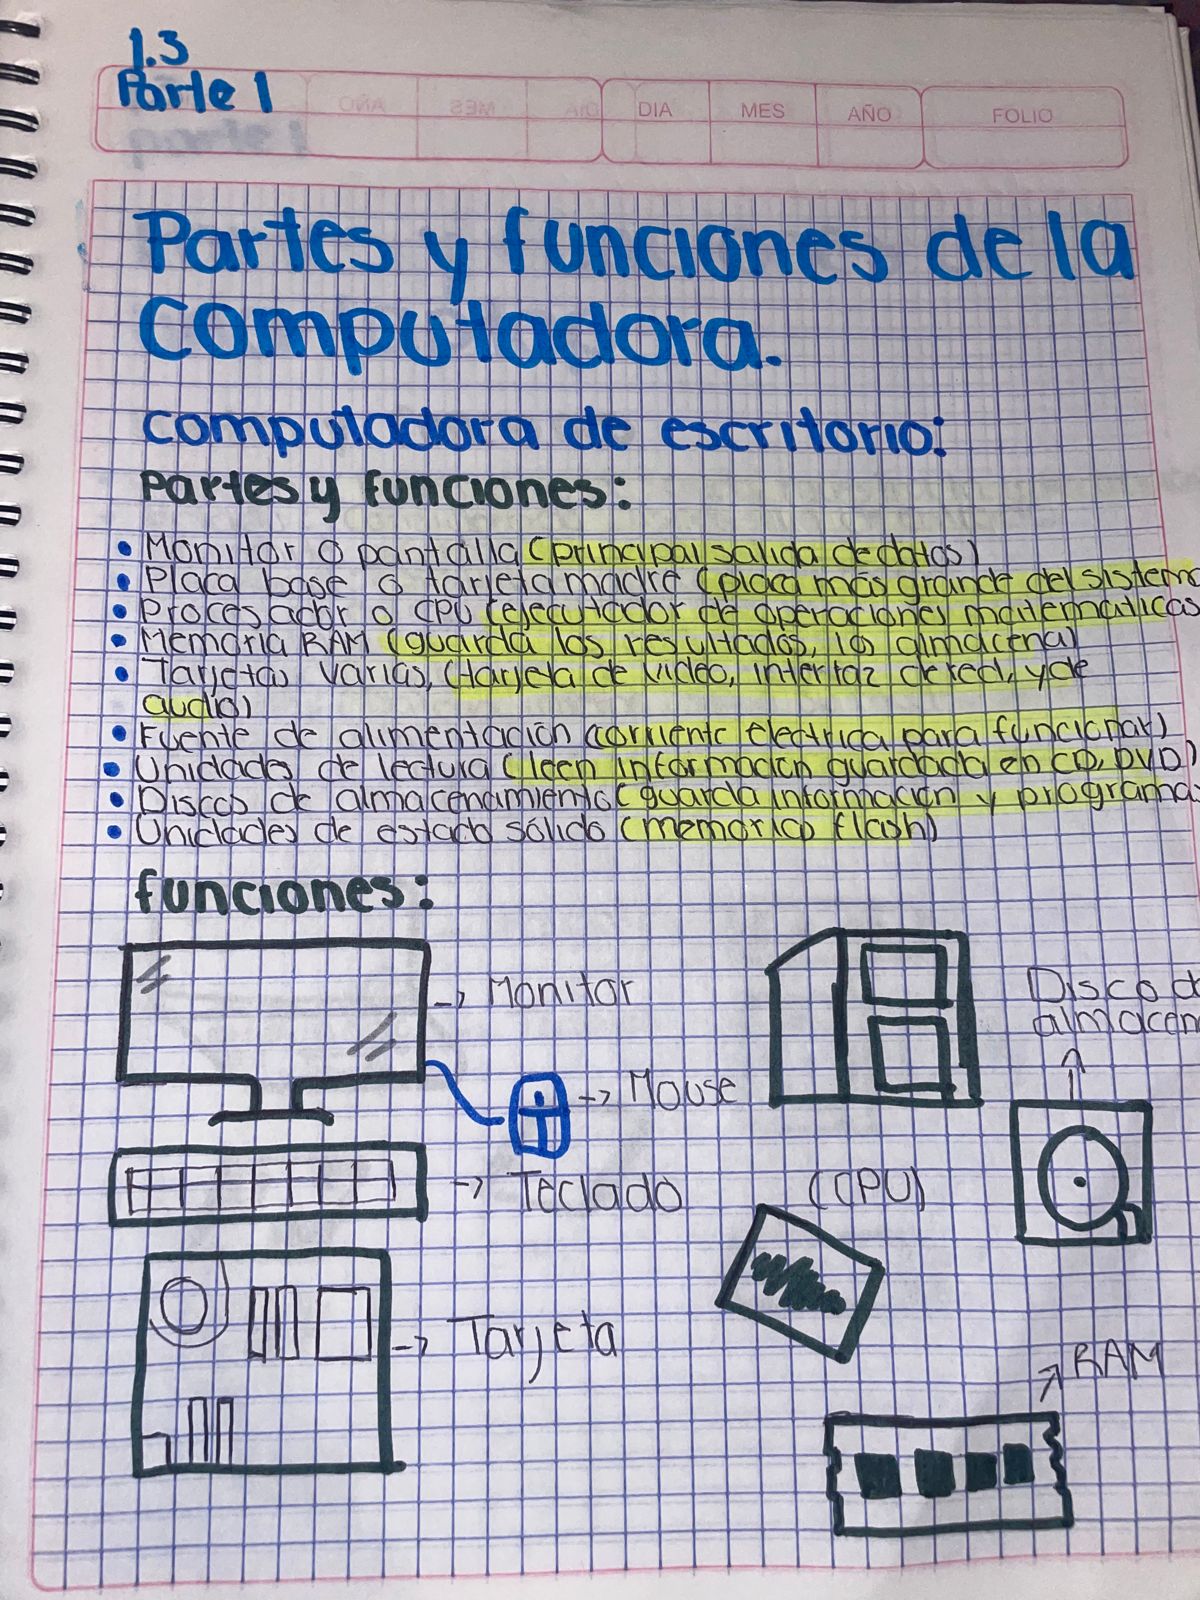 1.3
Parte 1
DIA MES AÑO FOLIO
Partes y funciones de la
computadora.
computadora de escritorio:
Partes y funciones:
• Monitor o pantalla (principal salida de datos)
• Placa base o tarjeta madre (placa más grande del sistema
• Procesador o CPU (ejecutador de operaciones matematicas
• Memoria RAM (guarda los resultados, los almacena)
• Tarjetas varias, (tarjeta de video, interfaz de red, y de
audio)
• Fuente de alimentación (corriente electrica para funcionar)
• Unidades de lectura (leen información guardada en CD, DVD)
• Discos de almacenamiento (guarda información y programas
• Unidades de estado sólido (memorias flash)
funciones:
→ Monitor
Disco d
almacen
→ Mouse
→ Teclado
(CPU)
→ Tarjeta
RAM